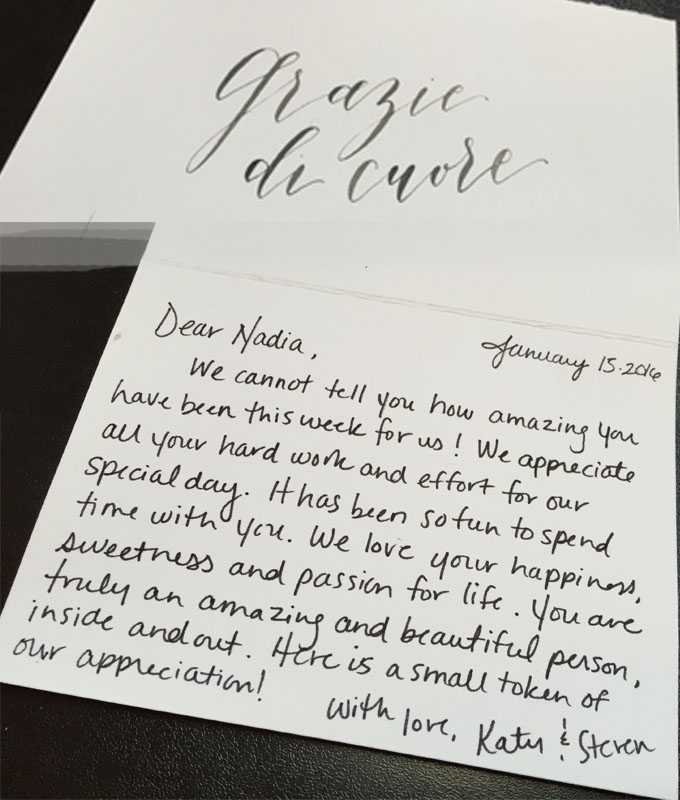 Grazie
di cuore
January 15.2016
Dear Nadia,
We cannot tell you how amazing you
have been this week for us! We appreciate
all your hard work and effort for our
special day. It has been so fun to spend
time with you. We love your happiness,
sweetness and passion for life. You are
truly an amazing and beautiful person,
inside and out. Here is a small token of
our appreciation!
With love, Katy & Steven